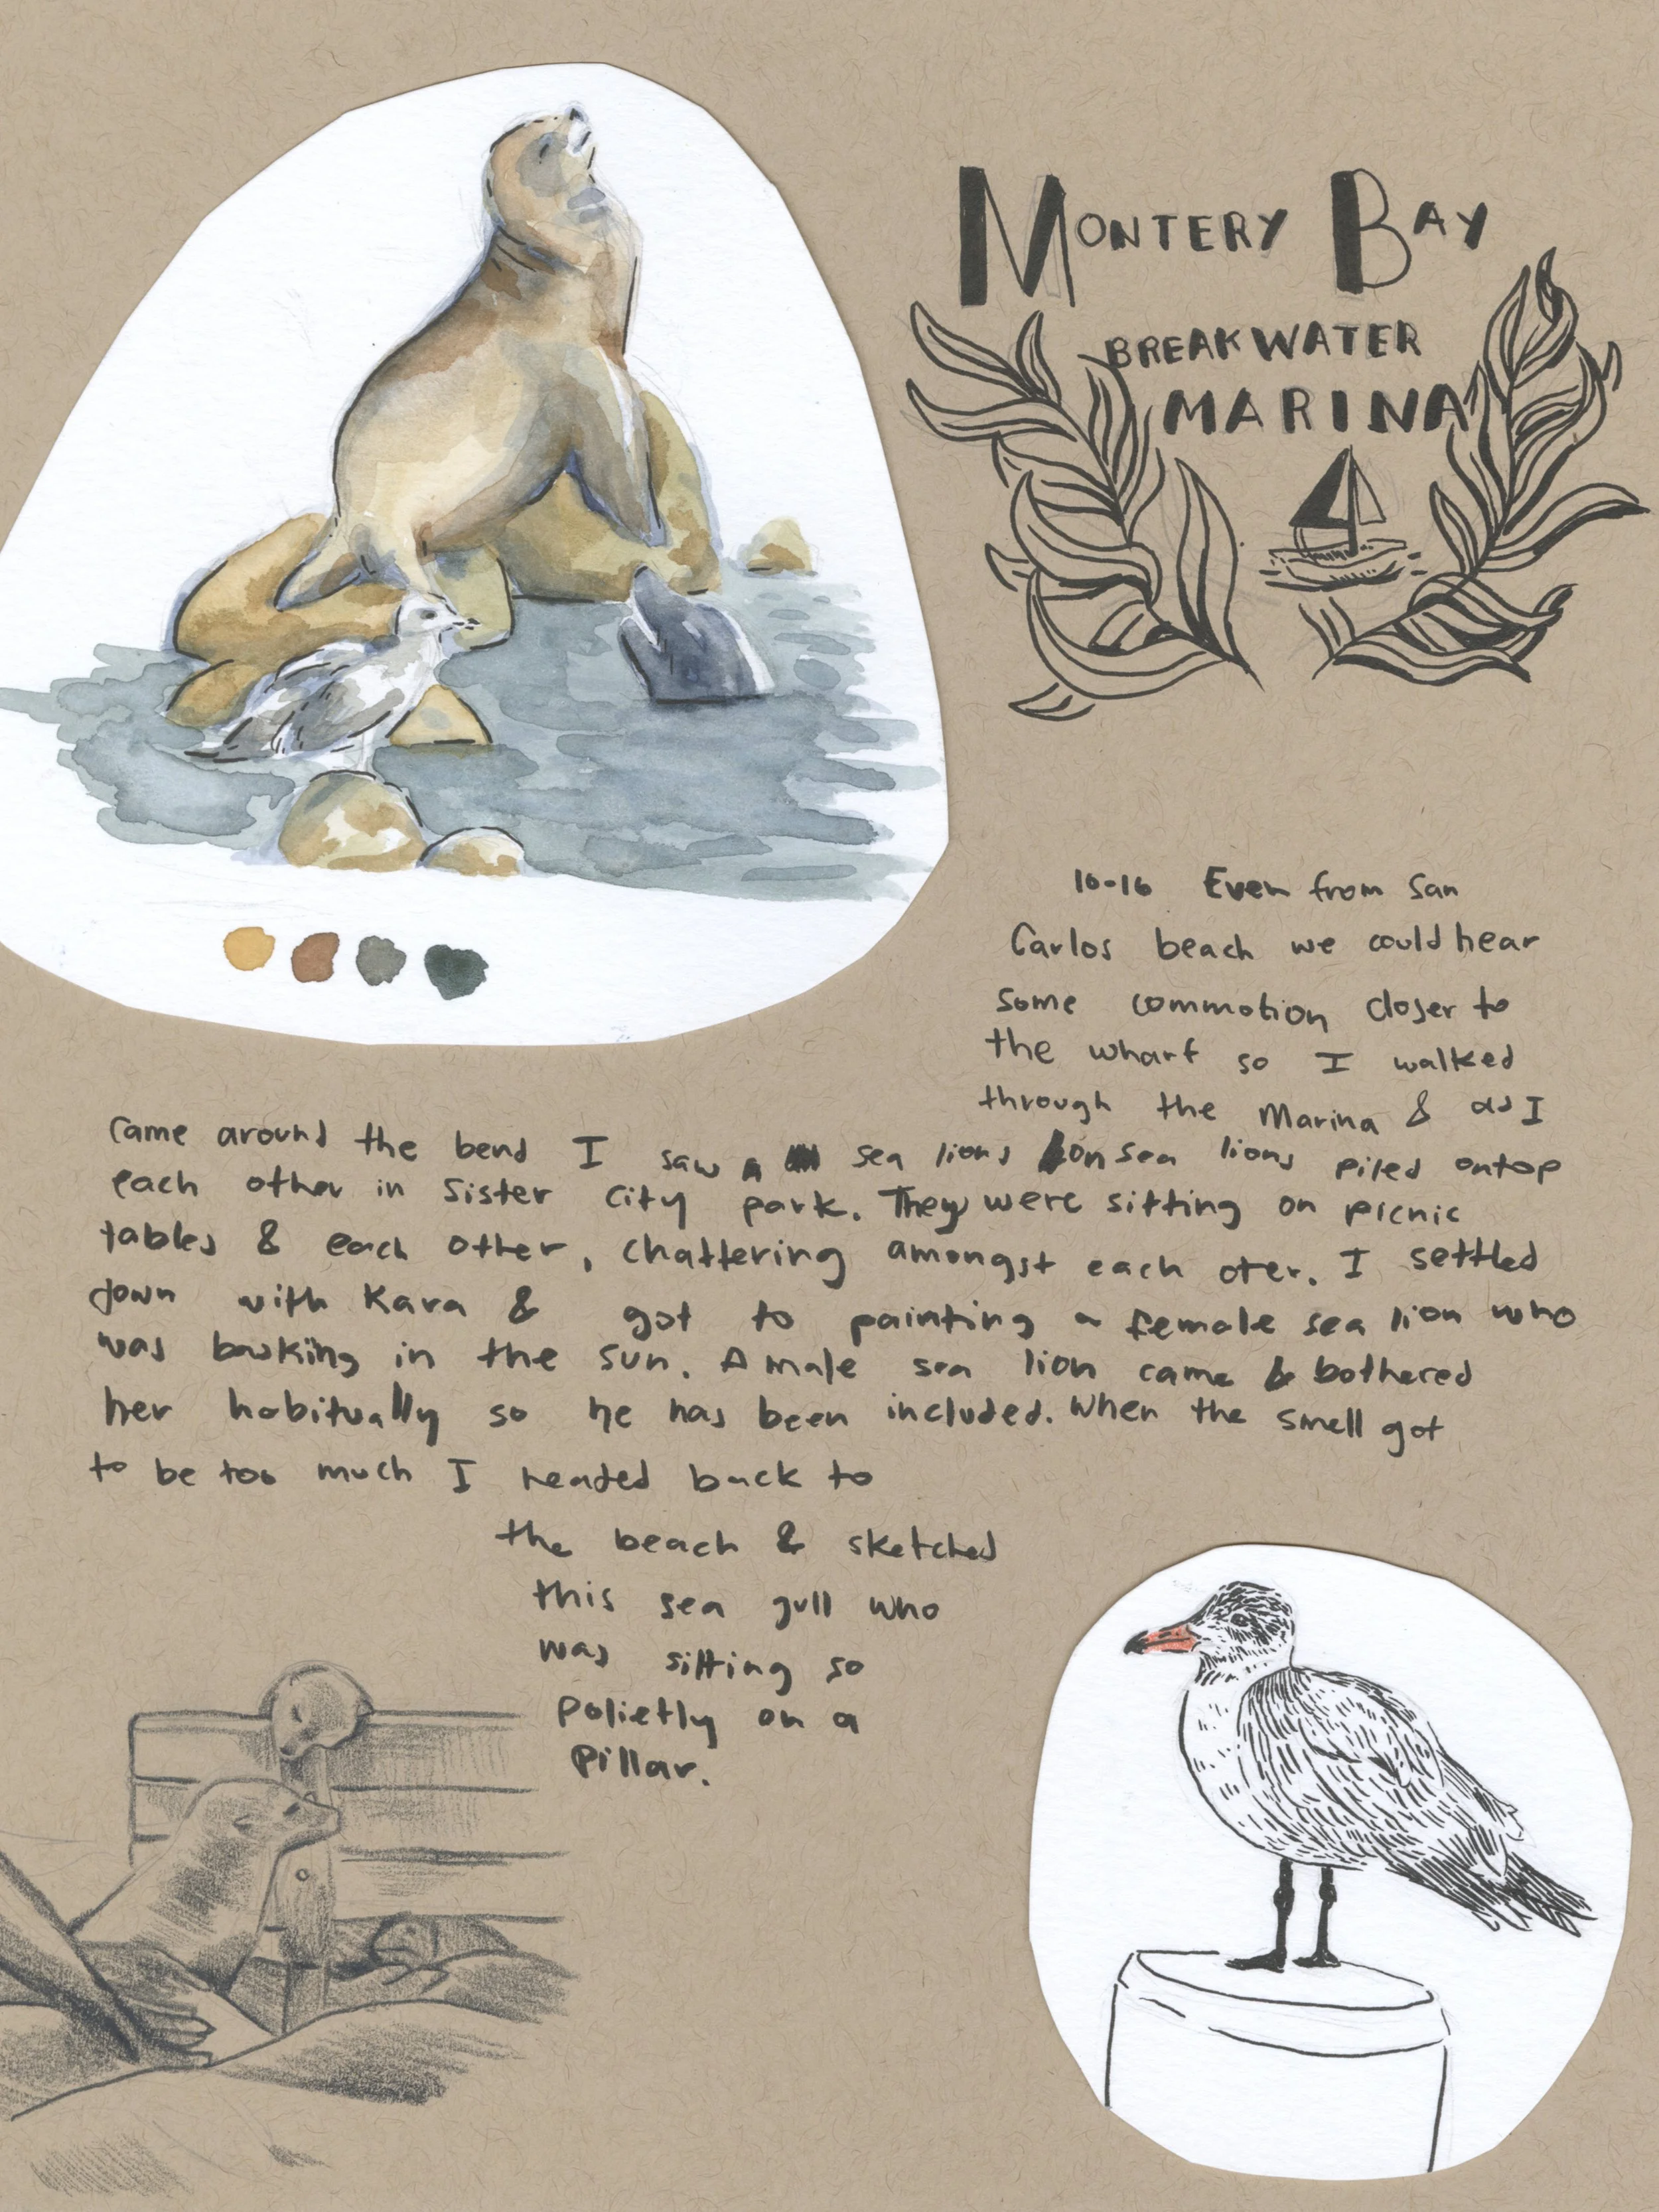 MONTERY BAY
BREAKWATER
MARINA
10-16 Even from San
Carlos beach we could hear
some commotion closer to
the wharf so I walked
through the Marina & as I
came around the bend I saw sea lions on sea lions piled ontop
each other in Sister City park. They were sitting on picnic
tables & each other, chattering amongst each oter. I settled
down with Kara & got to painting a female sea lion who
was basking in the sun. A male sea lion came & bothered
her habitually so he has been included. When the smell got
to be too much I headed back to
the beach & sketched
this sea gull who
was sitting so
polietly on a
pillar.